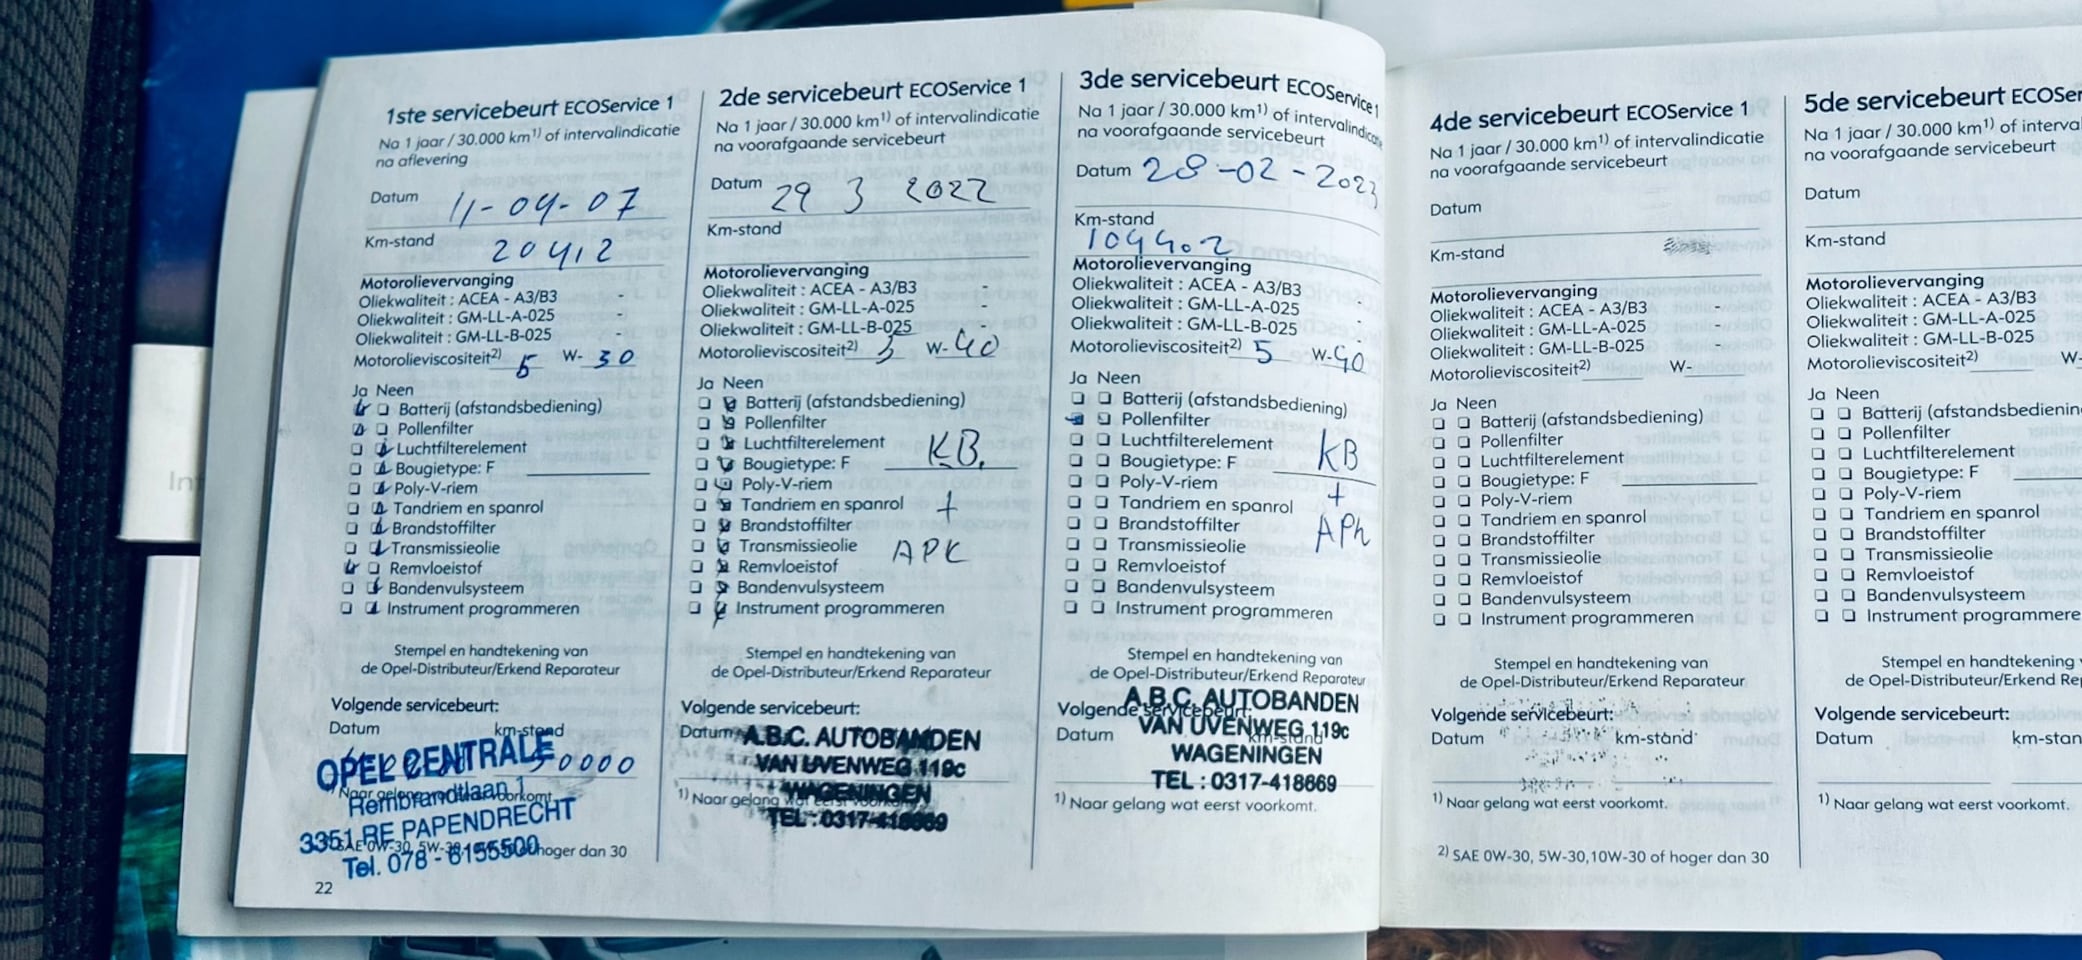 1ste servicebeurt ECOService 1
Na 1 jaar / 30.000 km¹⁾ of intervalindicatie
na aflevering
Datum 11-04-07
Km-stand 20412
Motorolievervanging
Oliekwaliteit : ACEA - A3/B3 -
Oliekwaliteit : GM-LL-A-025 -
Oliekwaliteit : GM-LL-B-025 -
Motorolieviscositeit²⁾ 5 W- 30
Ja Neen
Batterij (afstandsbediening)
Pollenfilter
Luchtfilterelement
Bougietype: F
Poly-V-riem
Tandriem en spanrol
Brandstoffilter
Transmissieolie
Remvloeistof
Bandenvulsysteem
Instrument programmeren
Stempel en handtekening van
de Opel-Distributeur/Erkend Reparateur
Volgende servicebeurt:
Datum km-stand
OPEL CENTRALE
Rembrandtlaan 1
3351 RE PAPENDRECHT
Tel. 078 - 6155500
hoger dan 30
22
2de servicebeurt ECOService 1
Na 1 jaar / 30.000 km¹⁾ of intervalindicatie
na voorafgaande servicebeurt
Datum 29 3 2022
Km-stand
Motorolievervanging
Oliekwaliteit : ACEA - A3/B3 -
Oliekwaliteit : GM-LL-A-025 -
Oliekwaliteit : GM-LL-B-025
Motorolieviscositeit²⁾ W-40
Ja Neen
Batterij (afstandsbediening)
Pollenfilter
Luchtfilterelement
Bougietype: F KB.
Poly-V-riem
Tandriem en spanrol +
Brandstoffilter
Transmissieolie APK
Remvloeistof
Bandenvulsysteem
Instrument programmeren
Stempel en handtekening van
de Opel-Distributeur/Erkend Reparateur
Volgende servicebeurt:
Datum
A.B.C. AUTOBANDEN
VAN UVENWEG 119c
WAGENINGEN
TEL : 0317-418669
¹⁾ Naar gelang wat eerst voorkomt.
3de servicebeurt ECOService 1
Na 1 jaar / 30.000 km¹⁾ of intervalindicatie
na voorafgaande servicebeurt
Datum 28-02-2023
Km-stand
104402
Motorolievervanging
Oliekwaliteit : ACEA - A3/B3
Oliekwaliteit : GM-LL-A-025
Oliekwaliteit : GM-LL-B-025 -
Motorolieviscositeit²⁾ 5 W-40
Ja Neen
Batterij (afstandsbediening)
Pollenfilter
Luchtfilterelement KB
Bougietype: F
Poly-V-riem +
Tandriem en spanrol
Brandstoffilter APK
Transmissieolie
Remvloeistof
Bandenvulsysteem
Instrument programmeren
Stempel en handtekening van
de Opel-Distributeur/Erkend Reparateur
Volgende servicebeurt:
Datum km-stand
A.B.C. AUTOBANDEN
VAN UVENWEG 119c
WAGENINGEN
TEL : 0317-418669
¹⁾ Naar gelang wat eerst voorkomt.
4de servicebeurt ECOService 1
Na 1 jaar / 30.000 km¹⁾ of intervalindicatie
na voorafgaande servicebeurt
Datum
Km-stand
Motorolievervanging
Oliekwaliteit : ACEA - A3/B3 -
Oliekwaliteit : GM-LL-A-025 -
Oliekwaliteit : GM-LL-B-025 -
Motorolieviscositeit²⁾ W-
Ja Neen
Batterij (afstandsbediening)
Pollenfilter
Luchtfilterelement
Bougietype: F
Poly-V-riem
Tandriem en spanrol
Brandstoffilter
Transmissieolie
Remvloeistof
Bandenvulsysteem
Instrument programmeren
Stempel en handtekening van
de Opel-Distributeur/Erkend Reparateur
Volgende servicebeurt:
Datum km-stand
¹⁾ Naar gelang wat eerst voorkomt.
²⁾ SAE 0W-30, 5W-30,10W-30 of hoger dan 30
5de servicebeurt ECOSer
Na 1 jaar / 30.000 km¹⁾ of interva
na voorafgaande servicebeurt
Datum
Km-stand
Motorolievervanging
Oliekwaliteit : ACEA - A3/B3
Oliekwaliteit : GM-LL-A-025
Oliekwaliteit : GM-LL-B-025
Motorolieviscositeit²⁾ W-
Ja Neen
Batterij (afstandsbedienin
Pollenfilter
Luchtfilterelement
Bougietype: F
Poly-V-riem
Tandriem en spanrol
Brandstoffilter
Transmissieolie
Remvloeistof
Bandenvulsysteem
Instrument programmere
Stempel en handtekening
de Opel-Distributeur/Erkend Re
Volgende servicebeurt:
Datum km-stan
¹⁾ Naar gelang wat eerst voorkomt.